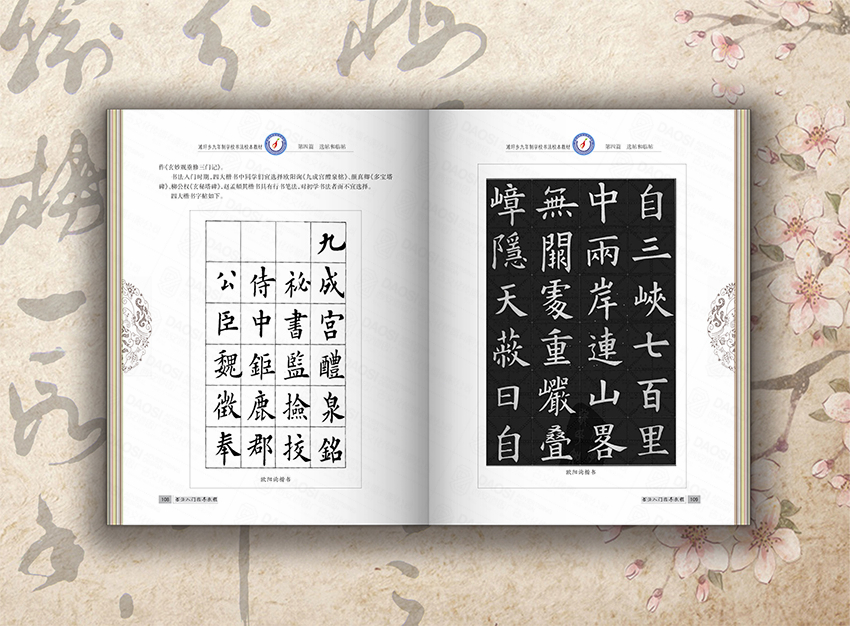 乡九年制学校书法校本教材 第四篇 选帖和临帖
作《玄妙观重修三门记》。
书法入门时期,四大楷书中同学们宜选择欧阳询《九成宫醴泉铭》、颜真卿《多宝塔
碑》、柳公权《玄秘塔碑》,赵孟頫其楷书具有行书笔法,对初学书法者而不宜选择。
四大楷书字帖如下。
九成宫醴泉銘
祕書監撿挍
侍中鉅鹿郡
公臣魏徵奉
欧阳询楷书
108 书法入门指导教程
乡九年制学校书法校本教材 第四篇 选帖和临帖
自三峽七百里
中兩岸連山畧
無闕處重巖叠
嶂隱天蔽日自
欧阳询楷书
书法入门指导教程 109